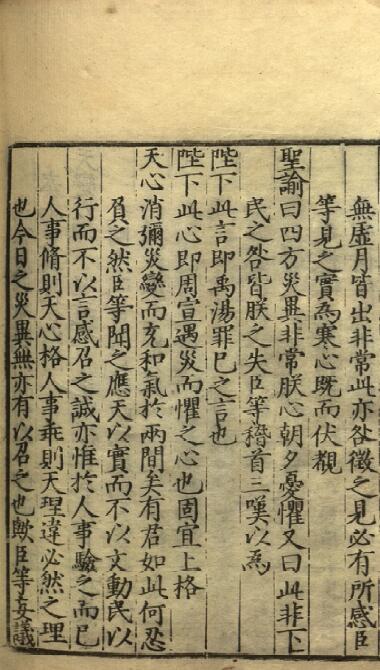 無虛月皆出非常此亦咎徵之見必有所感臣
等見之實爲寒心既而伏覩
聖諭曰四方災異非常朕心朝夕憂懼又曰此非下
民之咎皆朕之失臣等稽首三嘆以爲
陛下此言即禹湯罪已之言也
陛下此心即周宣遇災而懼之心也固宜上格
天心消彌災變而充和氣於兩間矣有君如此何忍
負之然臣等聞之應天以實而不以文動民以
行而不以言感召之誠亦惟於人事驗之而已
人事脩則天心格人事乖則天理違必然之理
也今日之災異無亦有以召之也歟臣等妄議